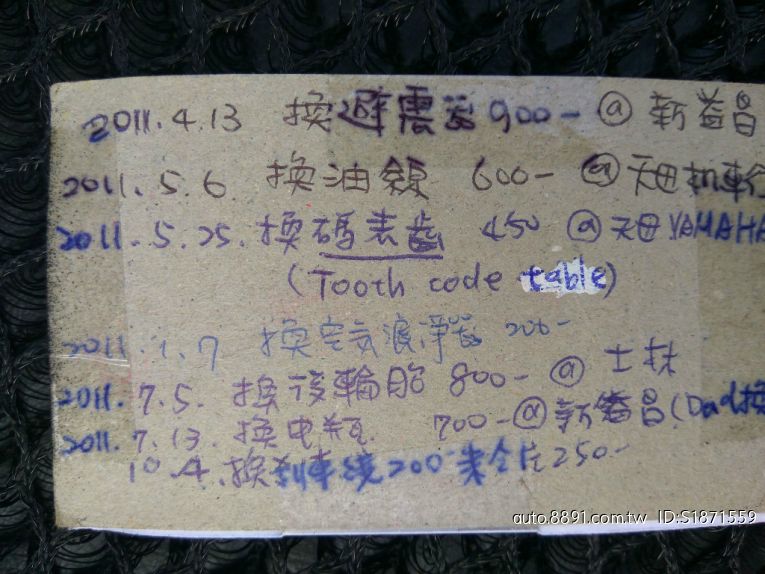 2011.4.13 換避震器 900- @ 新益昌
2011.5.6 換油線 600- @ 天母机車行
2011.5.25. 換碼表齒 450 @ 天母YAMAHA
(Tooth code table)
2011.1.7 換空氣濾淨器 200-
2011.7.5. 換後輪胎 800- @ 士林
2011.7.13. 換电瓶 700-@新益昌(Dad換
10.4.換剎車線200 來令片250-
auto.8891.com.tw ID:S1871559